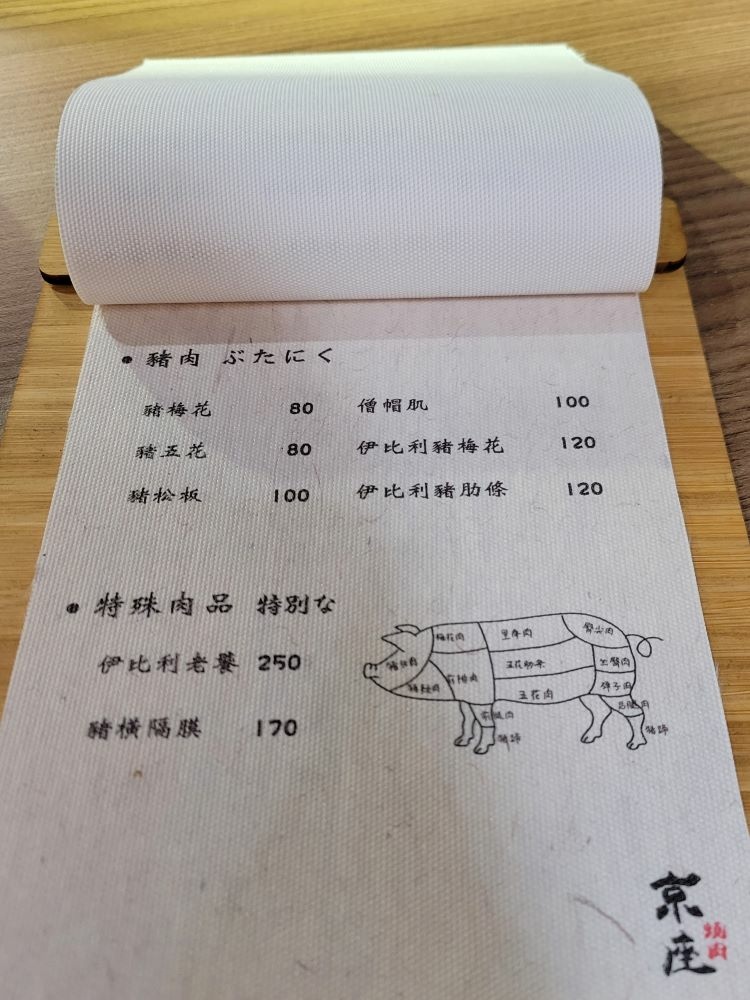 豬肉 ぶたにく
豬梅花 80 僧帽肌 100
豬五花 80 伊比利豬梅花 120
豬松板 100 伊比利豬肋條 120
特殊肉品 特別な
伊比利老饕 250
豬橫隔膜 170
梅花肉
里脊肉
臀尖肉
五花肋条
五花肉
弹子肉
前腿肉
后腿肉
豬蹄
豬蹄
京座
燒肉